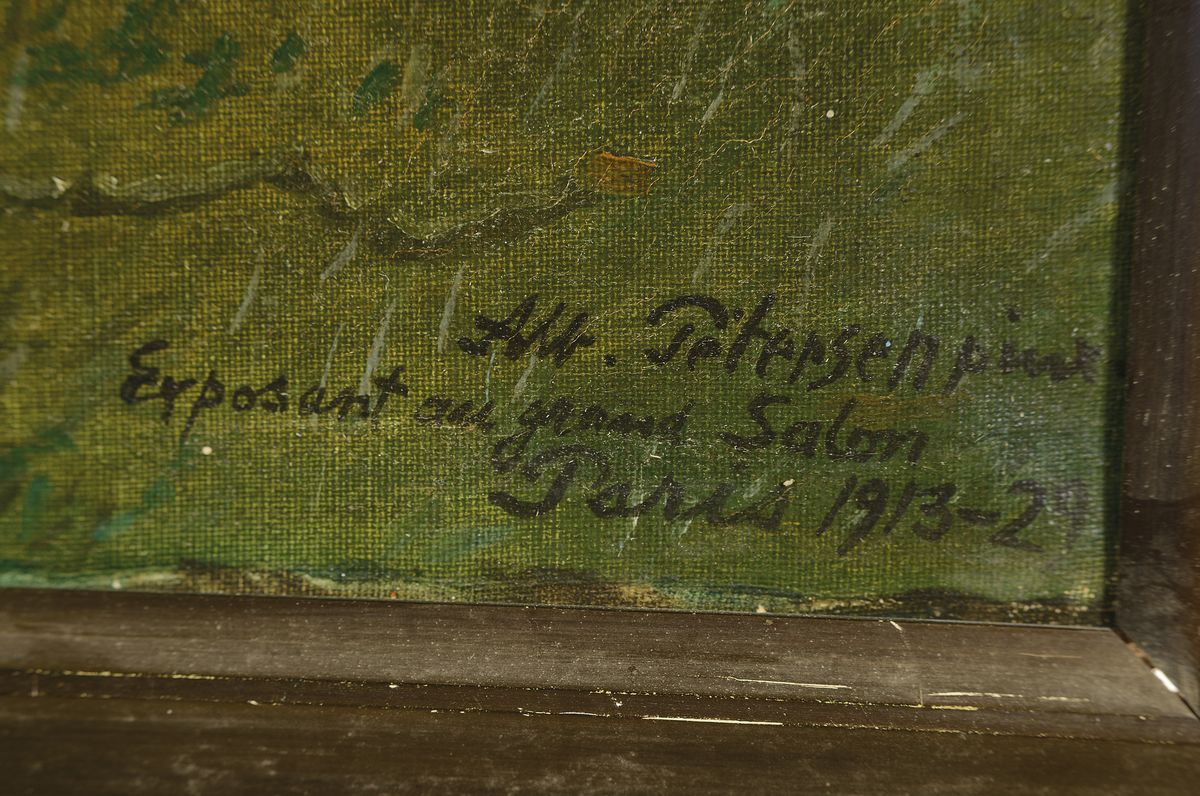 Alb. Petersen pinx
Exposant au grand Salon
Paris 1913-29